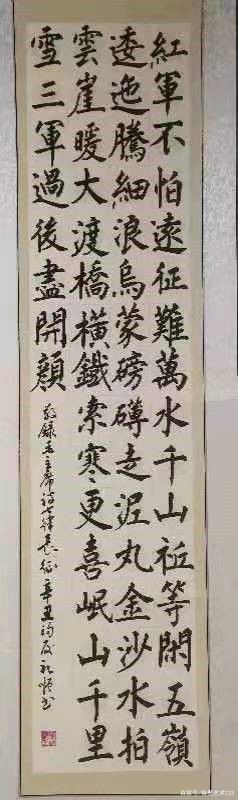 紅軍不怕遠征難萬水千山祗等閑五嶺
逶迤騰細浪烏蒙磅礴走泥丸金沙水拍
雲崖暖大渡橋橫鐵索寒更喜岷山千里
雪三軍過後盡開顏
敬錄毛主席詩七律長征辛丑初夏
百家号